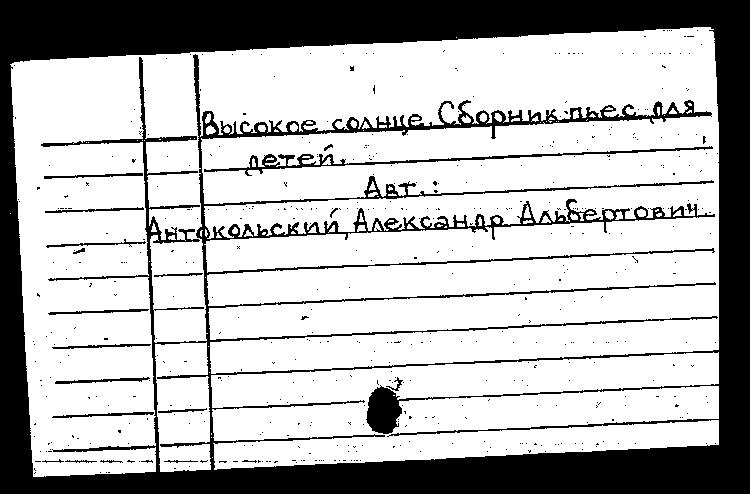 Высокое солнце. Сборник пьес для
детей.
Авт.:
Антокольский, Александр Альбертович